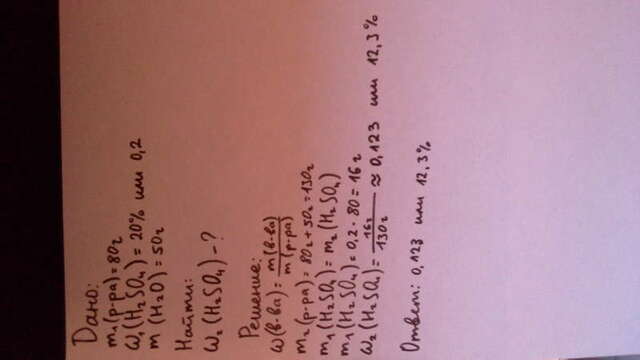 Дано:
m₁(р-ра)=80г
ω₁(H₂SO₄)=20% или 0,2
m(H₂O)=50г
Найти:
ω₂(H₂SO₄)-?
Решение:
ω(в-ва)=m(в-ва)/m(р-ра)
m₂(р-ра)=80г+50г=130г
m₁(H₂SO₄)=m₂(H₂SO₄)
m₁(H₂SO₄)=0,2*80=16г
ω₂(H₂SO₄)=16г/130г≈0,123 или 12,3%
Ответ: 0,123 или 12,3%